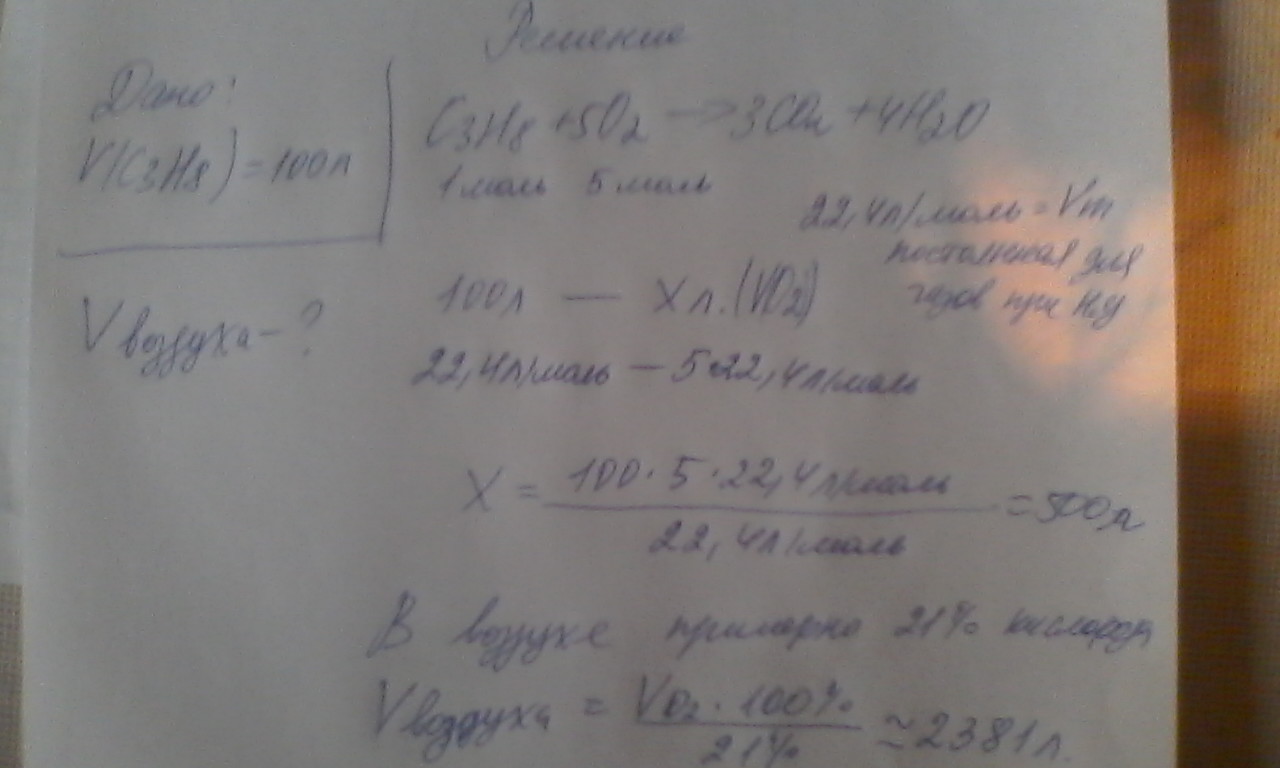 Решение
Дано:
V(C3H8) = 100л
C3H8 + 5O2 → 3CO2 + 4H2O
1 моль 5 моль
22,4л/моль = Vm
постоянная для
газов при н.у
V воздуха - ?
100л — X л. (VO2)
22,4л/моль — 5·22,4л/моль
X = 100 · 5 · 22,4 л/моль / 22,4л/моль = 500л
В воздухе примерно 21% кислорода
V воздуха = VO2 · 100% / 21% ≃ 2381л.